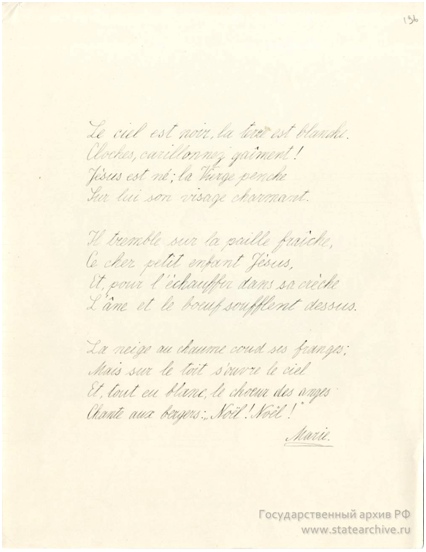 196
Le ciel est noir, la terre est blanche.
Cloches, carillonnez gaîment!
Jésus est né; la Vierge penche
Sur lui son visage charmant.
Il tremble sur la paille fraîche,
Ce cher petit enfant Jésus,
Et, pour l'échauffer dans sa crèche
L'âne et le bœuf soufflent dessus.
La neige au chaume coud ses franges;
Mais sur le toit s'ouvre le ciel
Et, tout en blanc, le chœur des anges
Chante aux bergers: „Noël! Noël!
Marie.
Государственный архив РФ
www.statearchive.ru